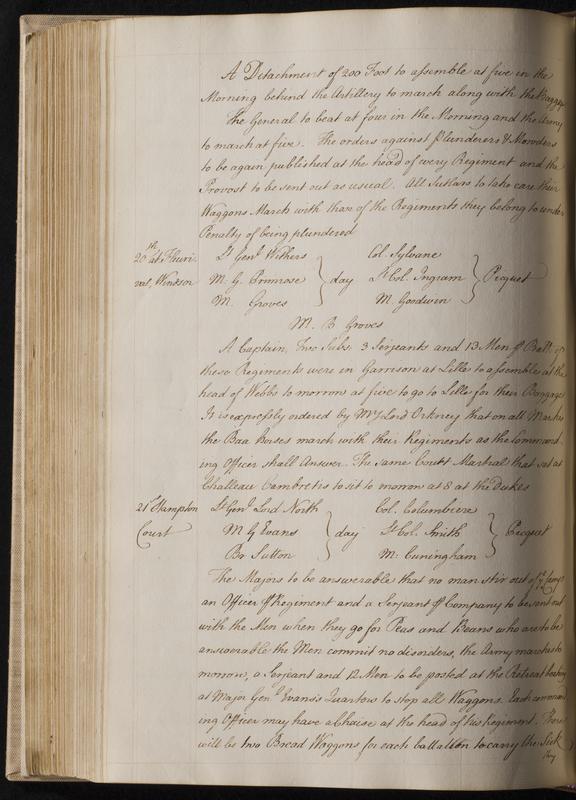 A Detachment of 200 Foot to assemble at five in the
Morning behind the Artillery to march along with the Baggage
The General to beat at four in the Morning and the Army
to march at five. The orders against plunderers & Marroders
to be again published at the head of every Regiment and the
Provost to be sent out as usual. All Sutlars to take care their
Waggons March with those of the Regiments they belong to under
Penalty of being plundered
20th at Fleuri-
val, Windsor
Lt Genl Withers
M. G. Primrose
M. Groves
day
Col. Sylvane
Lt Col. Ingram
M. Goodwin
Picquet
M. B Groves
A Captain, Two Subs. 3 Serjeants and 13 Men ⅌ Batt. of
these Regiments were in Garrison at Lille to assemble at the
head of Webbs to morrow at five to go to Lille for their Baggage
It is expressly ordered by My Lord Orkney that on all Marches
the Baa Horses march with their Regiments as the Command-
ing Officer shall Answer. The same Court Martial that sat at
Chatteau Cambresis to sit to morrow at 8 at the Dukes
21st Hampton
Court
Lt Genl Lord North
M G Evans
Br Sutton
day
Col. Columbiere
Lt Col. Smith
M. Cuningham
Picquet
The Majors to be answerable that no man stir out of ye Camp
an Officer ⅌ Regiment and a Serjant ⅌ Company to be sent out
with the Men when they go for Peas and Beans who are to be
answerable the Men commit no disorders, the Army marches to
morrow, a Serjant and 12 Men to be posted at the Retreat beating
at Major Genl Evans's Quarters to stop all Waggons. Each command
ing Officer may have a Chaise at the head of his Regiment. There
will be two Bread Waggons for each battalion to carry the Sick
they